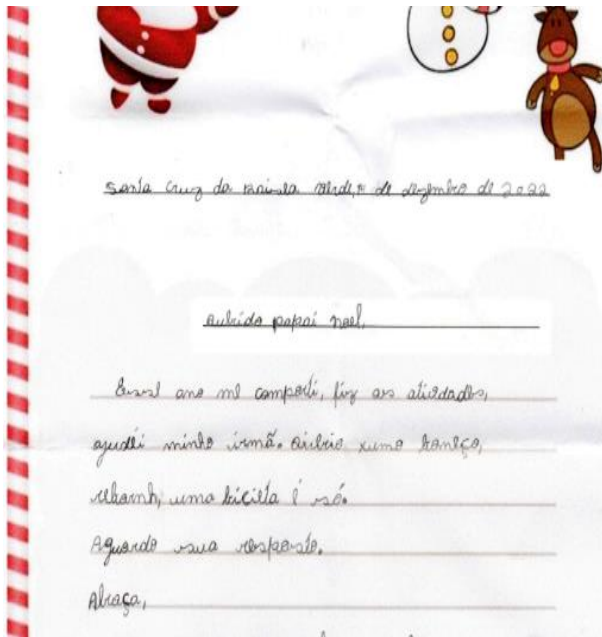 Santa Cruz da Baixla Verde, 1º de dezembro de 2022
Qubrido papai noel,
Essest ano me comporti, fiz as atividades,
ajudei minha irmã. Quibrio uma boneca,
uma bicicita é só.
Aguardo sua resposta.
Abraça,